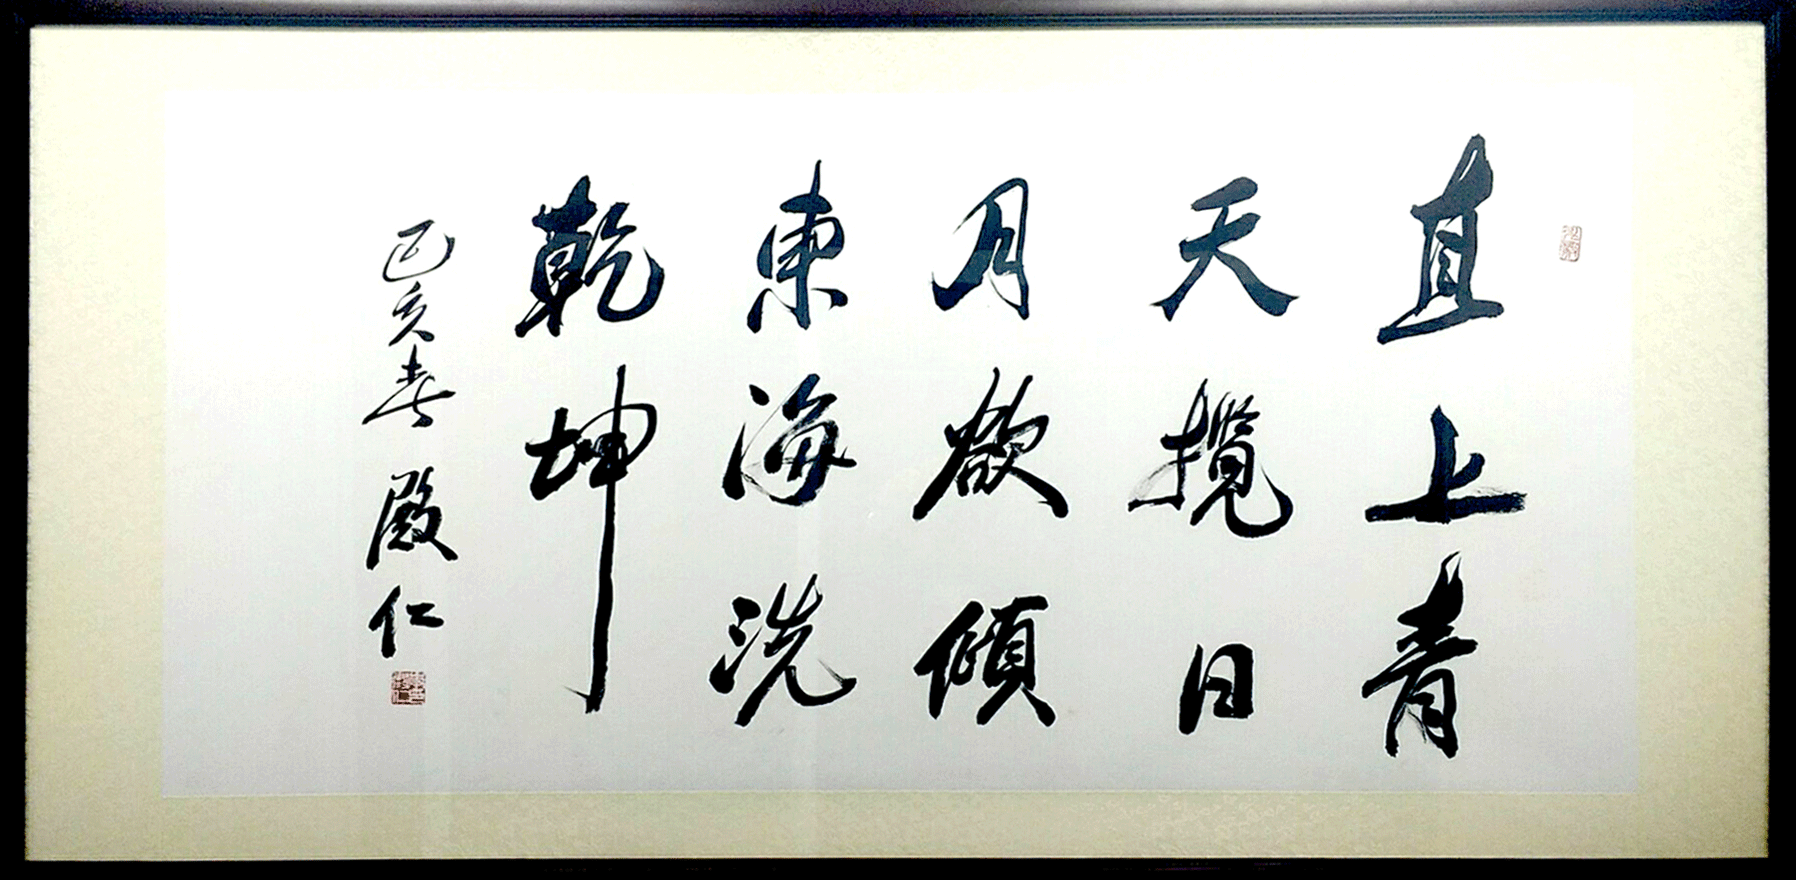 直上青
天攬日
月欲傾
東海洗
乾坤
己亥春 殿仁